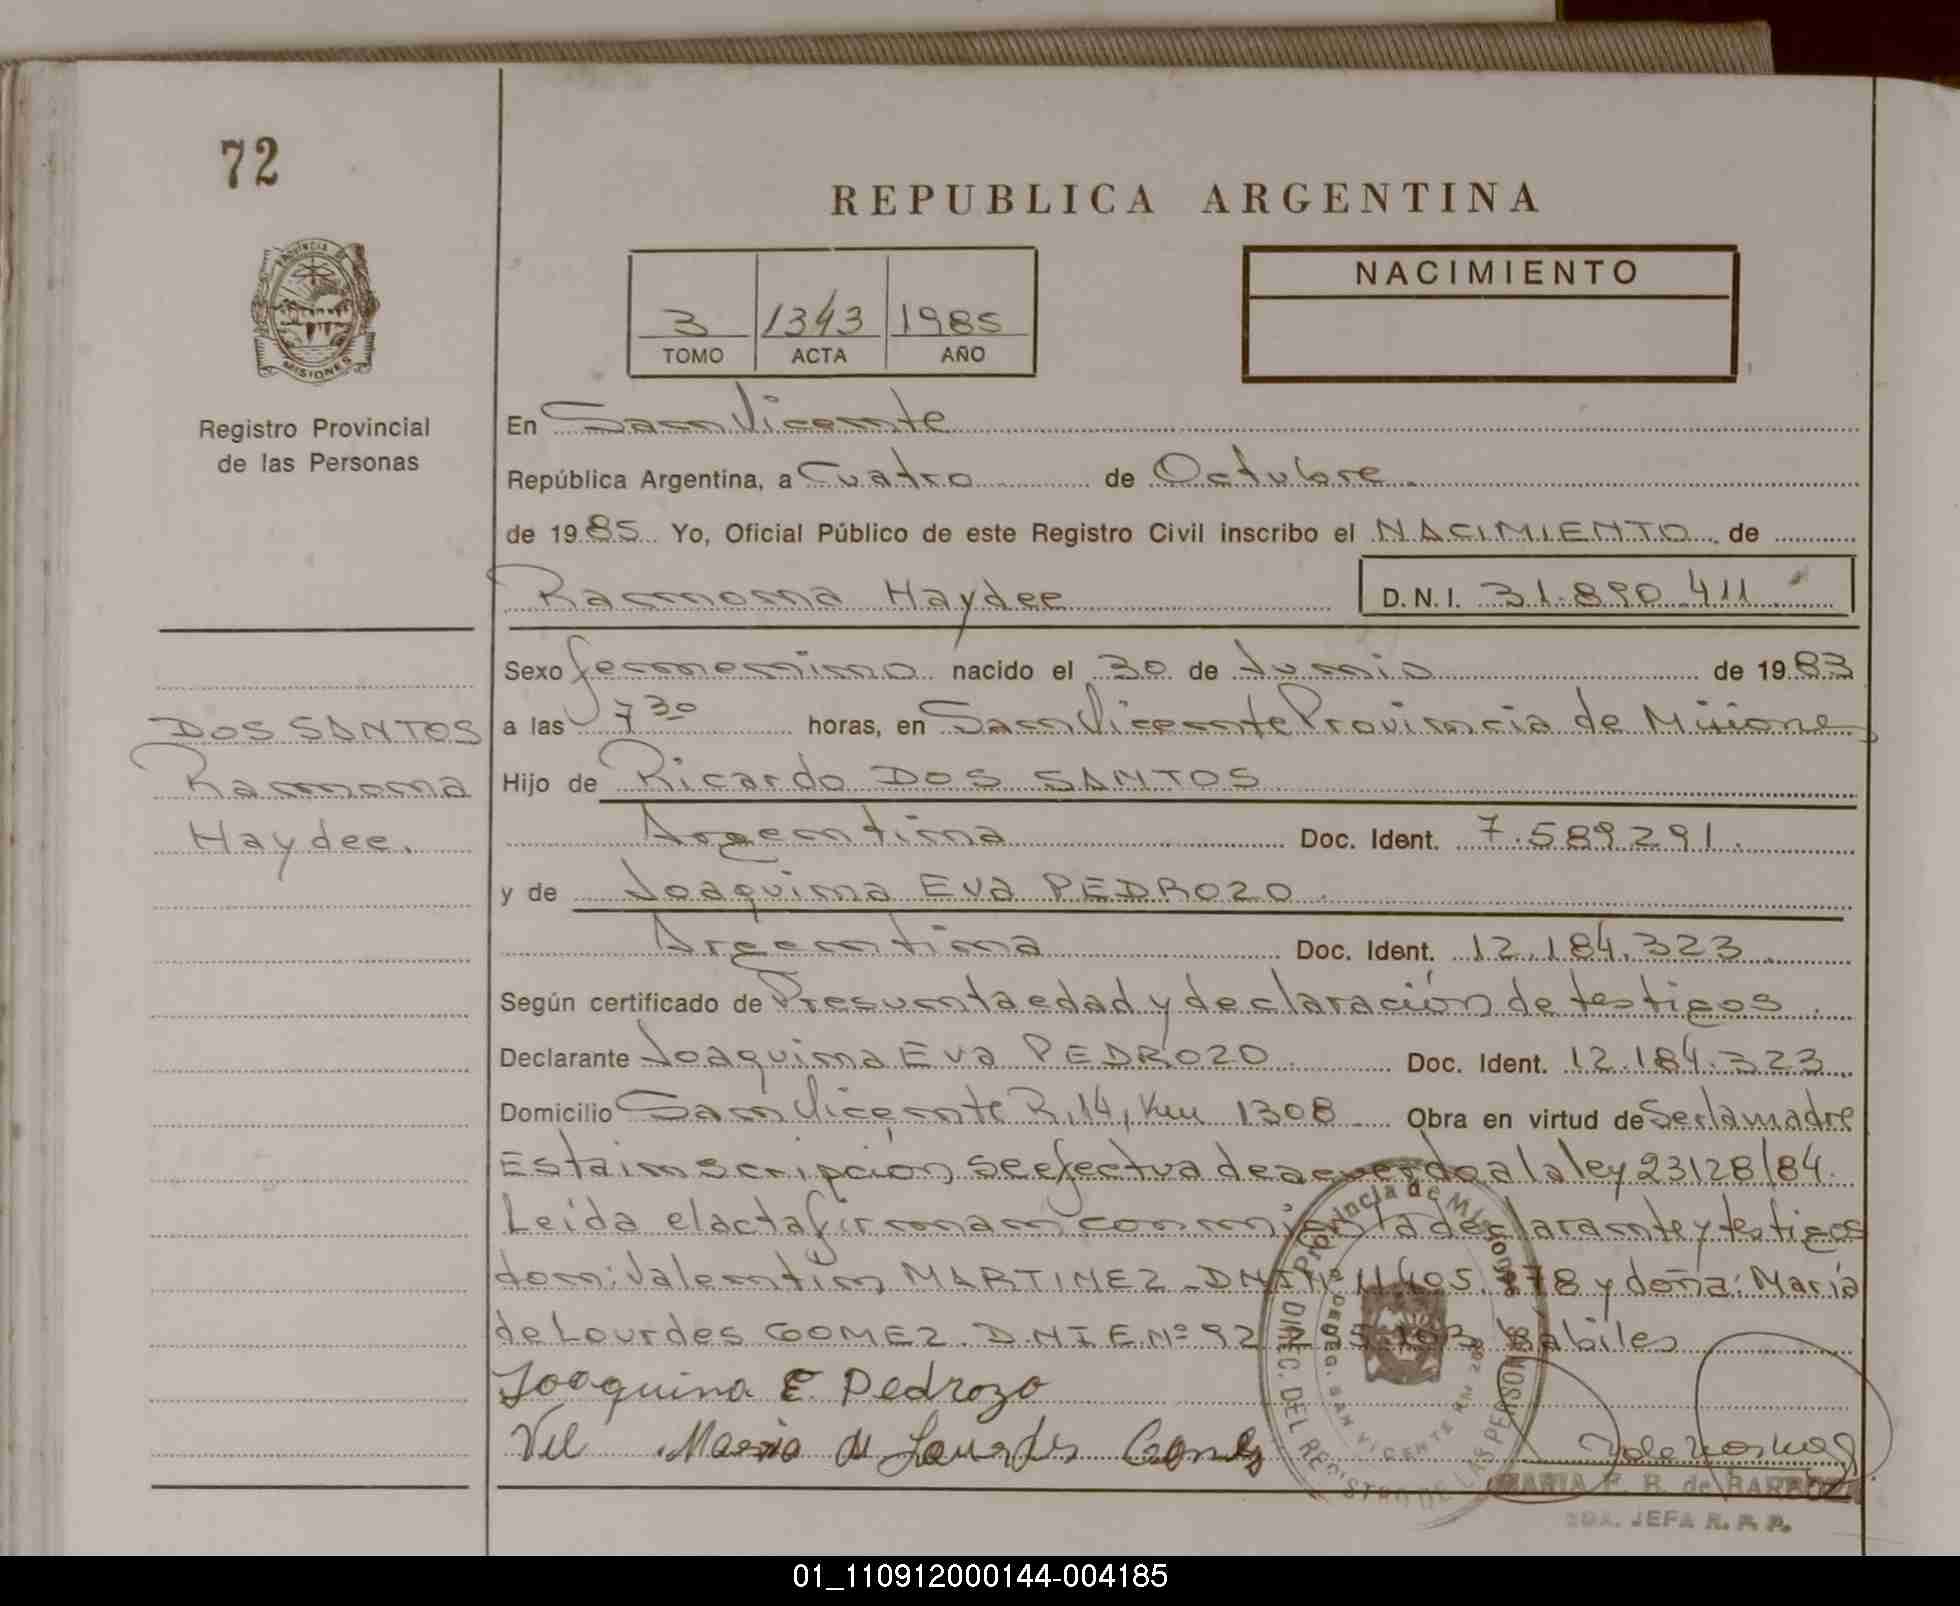 72
REPUBLICA ARGENTINA
PROVINCIA DE
MISIONES
3 1343 1985
TOMO ACTA AÑO
NACIMIENTO
Registro Provincial
de las Personas
En San Vicente
República Argentina, a Cuatro de Octubre.
de 1985 Yo, Oficial Público de este Registro Civil inscribo el NACIMIENTO de
Ramona Haydee D.N.I. 31.890.411
Sexo femenino nacido el 30 de Junio de 1983
a las 7 30 horas, en San Vicente Provincia de Misiones
DOS SANTOS
Ramona
Haydee.
Hijo de Ricardo DOS SANTOS
Argentina Doc. Ident. 7.589291.
y de Joaquina Eva PEDROZO.
Argentina Doc. Ident. 12.184.323
Según certificado de Presunta edad y declaración de testigos.
Declarante Joaquina Eva PEDROZO. Doc. Ident. 12.184.323
Domicilio San Vicente R.14, Km 1308 Obra en virtud de Ser la madre
Esta inscripción se efectua de acuerdo a la ley 23128/84.
Leída el acta firman conmigo la declarante y testigos
don: Valentin MARTINEZ - DNI Nº 11.405.278 y doña: María
de Lourdes GOMEZ. D.N.I.E. Nº 92 hábiles
Joaquina E. Pedrozo
Maria de Lourdes Gomes
Provincia de Misiones
DIREC. DEL REGISTRO DE LAS PERSONAS
DELEG. SAN VICENTE
MARIA F. B. de BARBOZA
JEFA R. P. P.
01_110912000144-004185